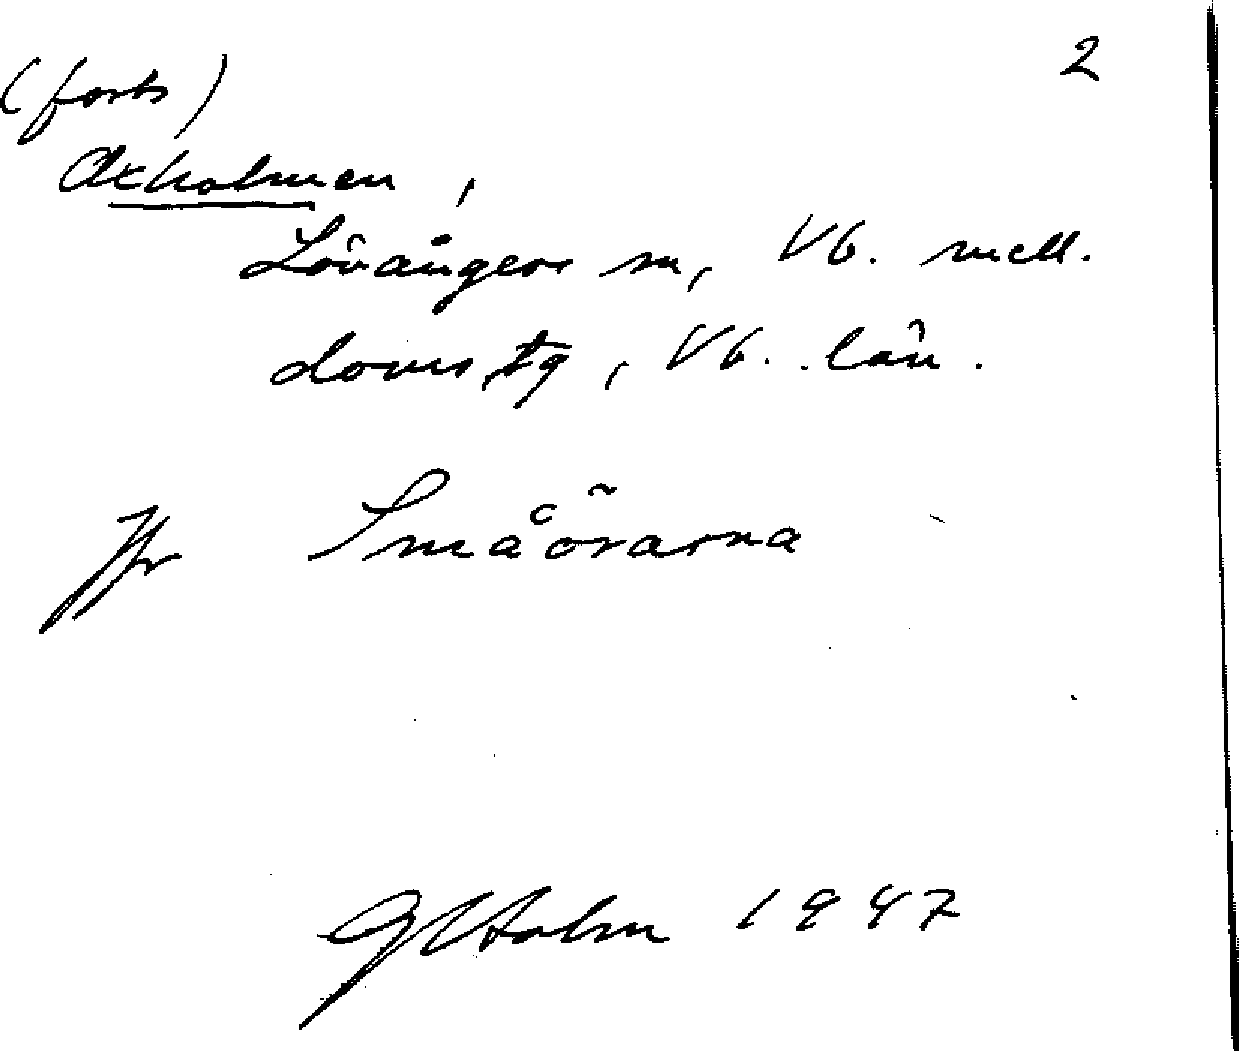 2
(forts)
Axholmen,
Lövångers sn, Vb. mell.
doms,tg, Vb. län.
Jfr Småörarna
G Holm 1947